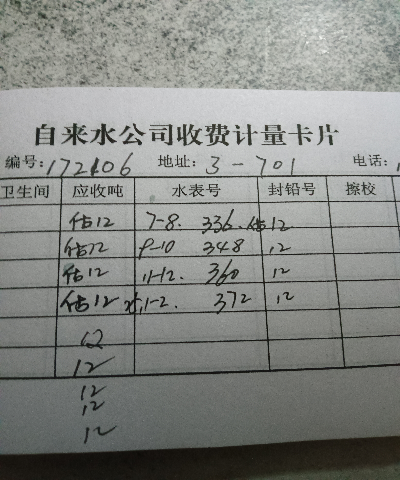 自来水公司收费计量卡片
编号:172106 地址:3-701 电话:
卫生间 应收吨 水表号 封铅号 擦校
估12 7-8. 336. 估12
估12 9-10 348 12
估12 11-12. 360 12
估12 1-2. 372 12
12
12
12
12
12